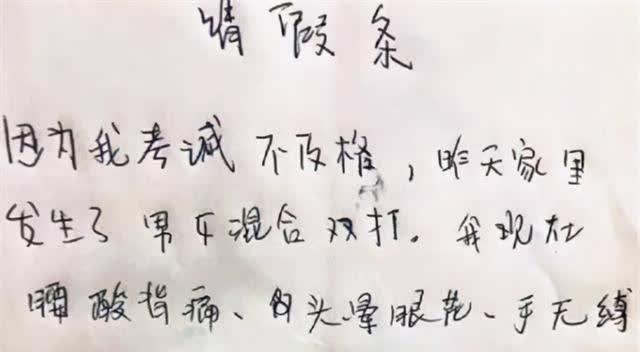 请假条
因为我考试不及格，昨天家里
发生了男女混合双打。我现在
腰酸背痛、头晕眼花、手无缚